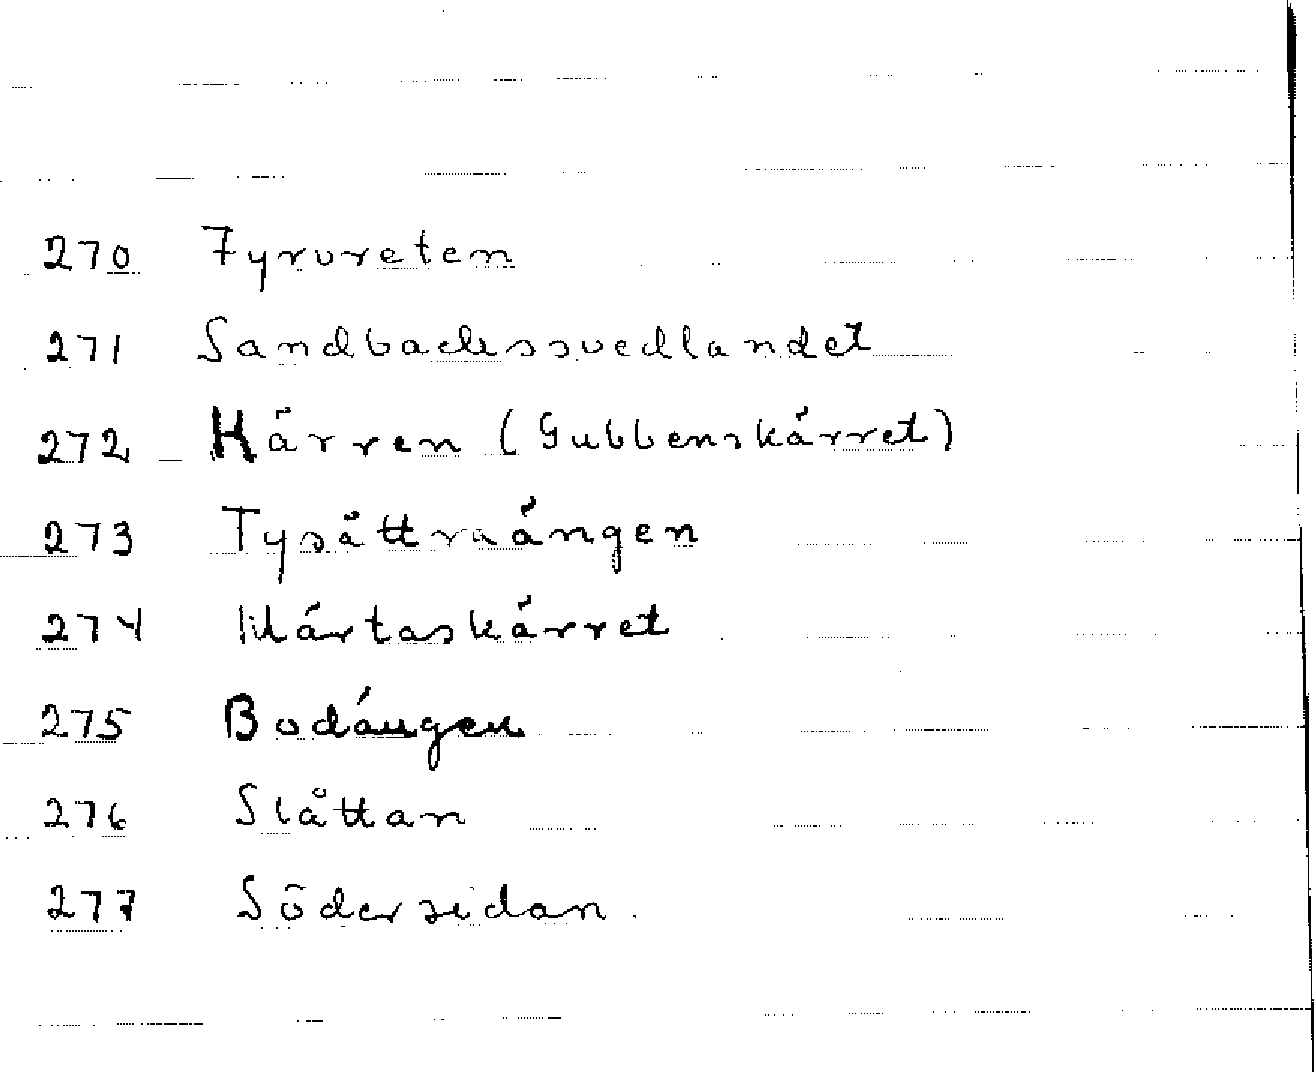 270 Fyrvreten
271 Sandbackssvedlandet
272 Kärren (Gubbenskärret)
273 Tysättraängen
274 Märtaskärret
275 Bodängen
276 Slåttan
277 Södersidan.